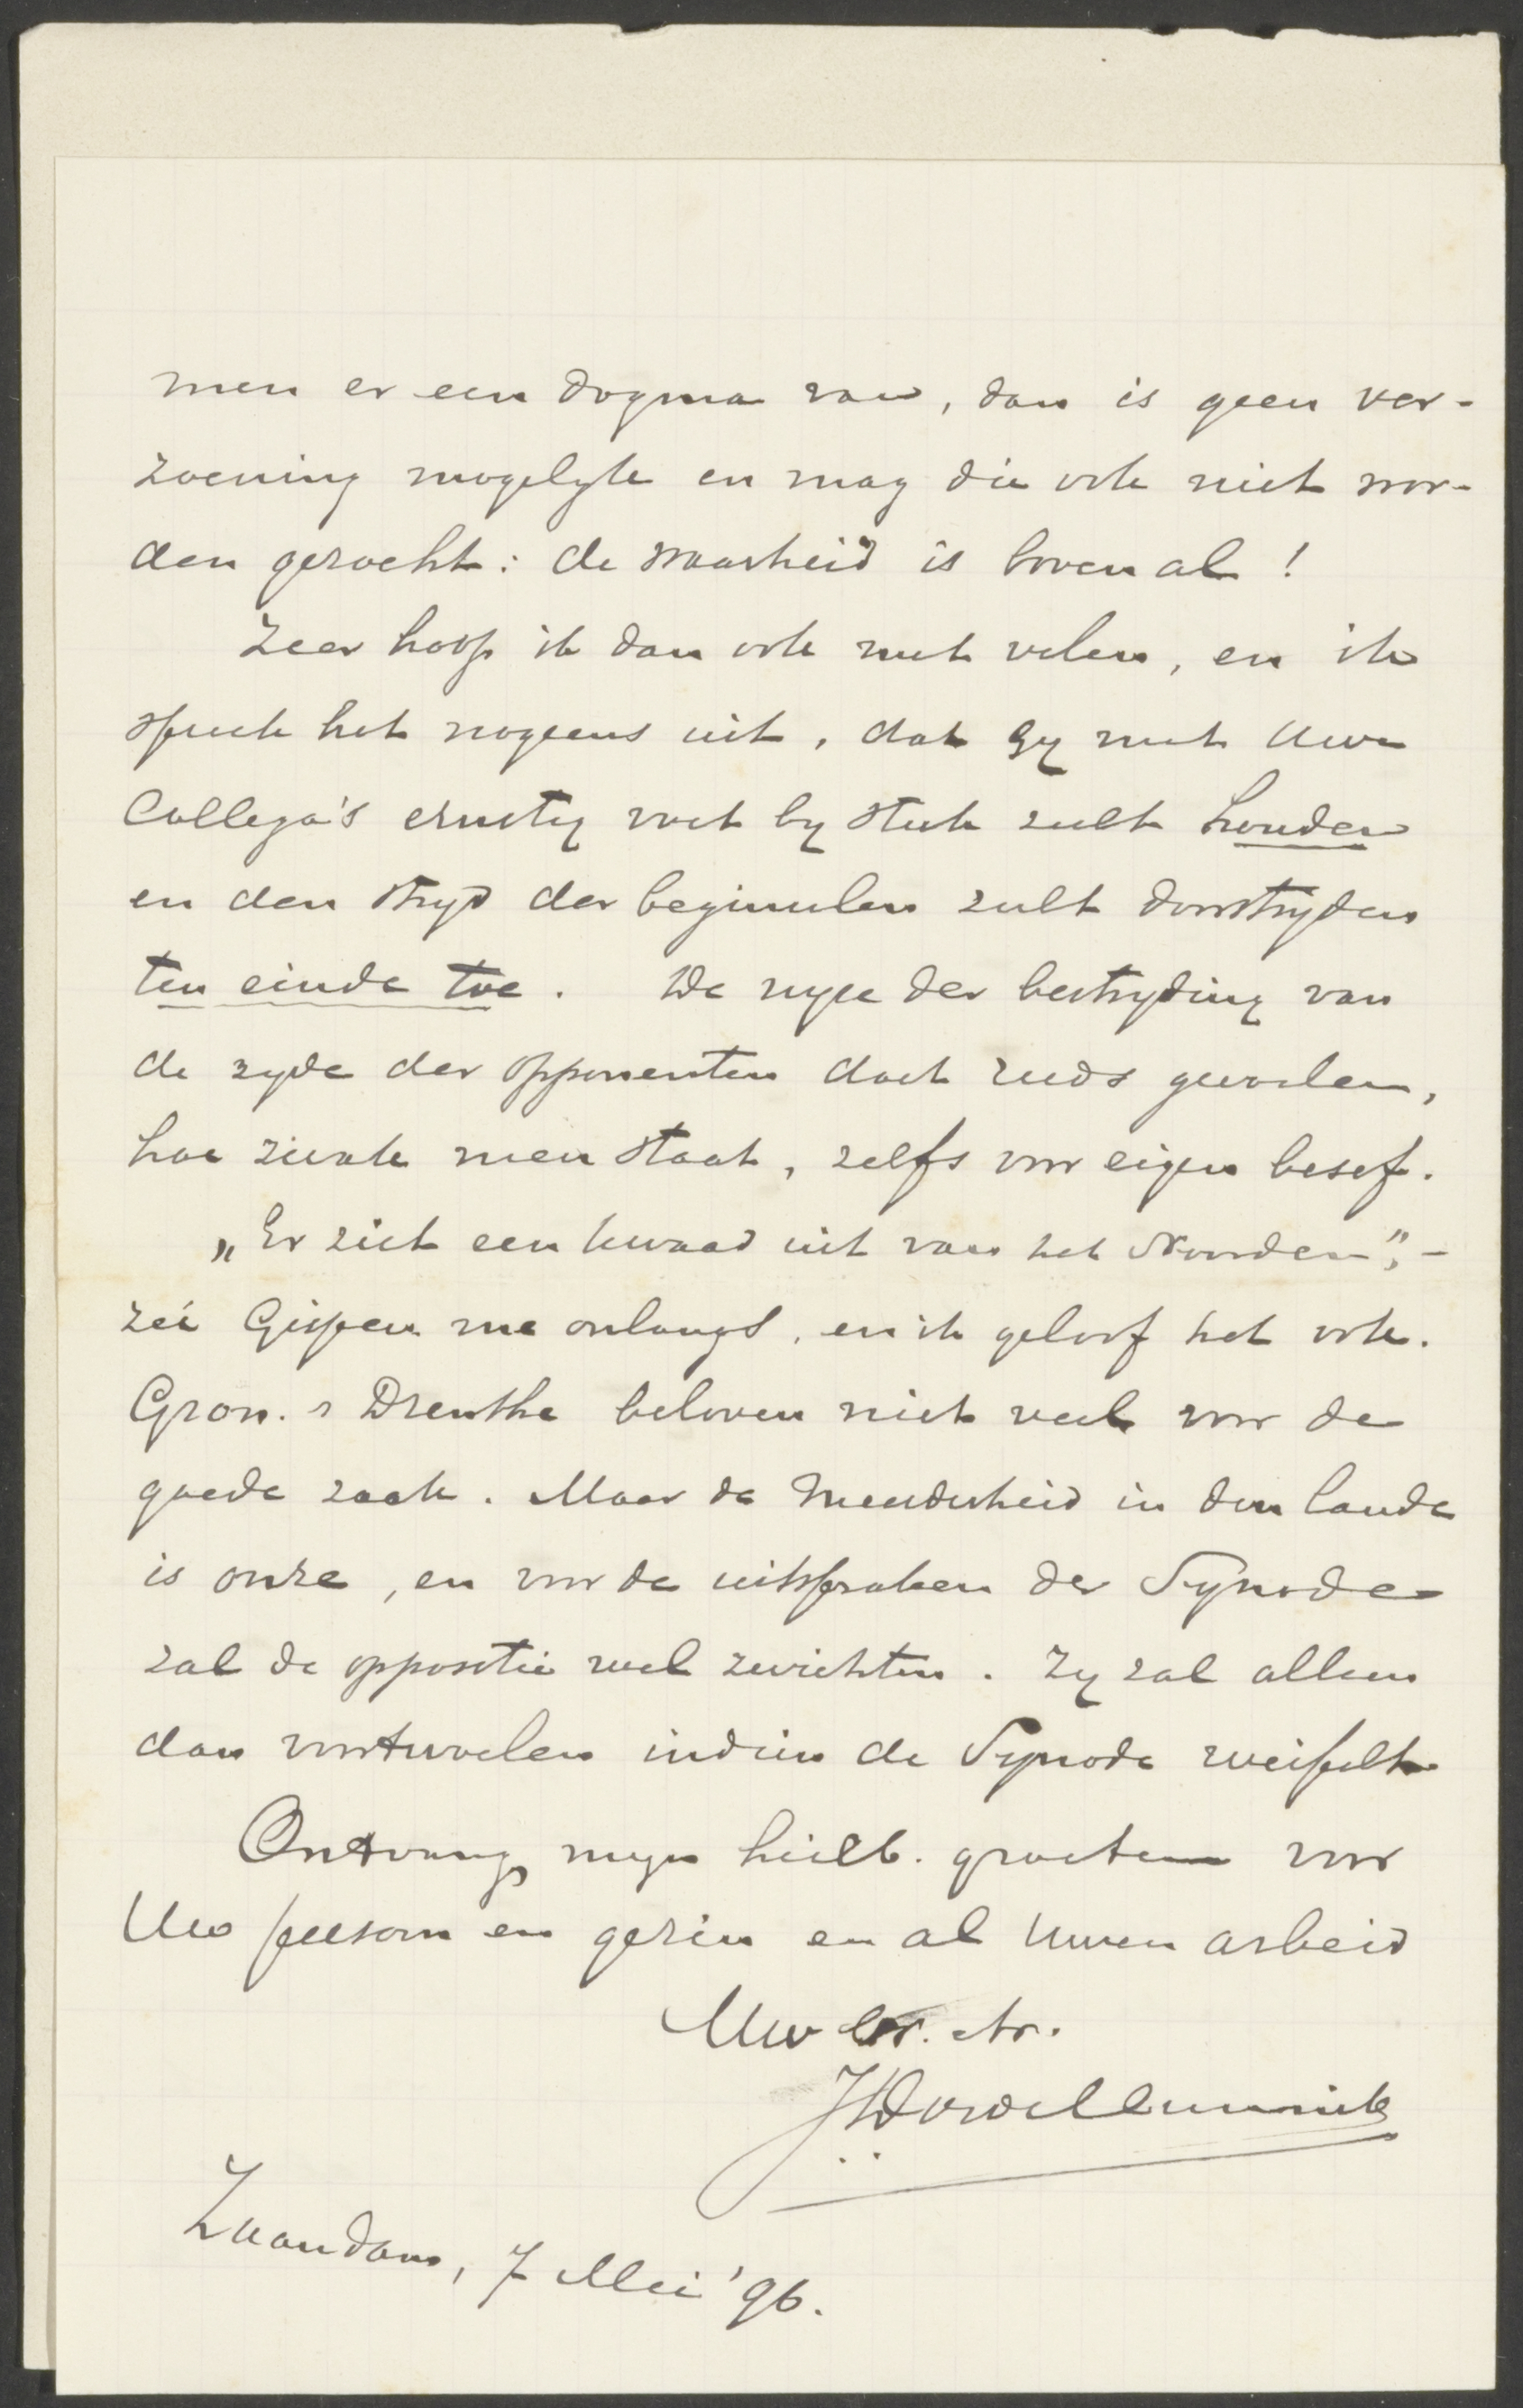 men er een dogma van, dan is geen ver-
zoening mogelyk en mag die ook niet wor-
den gezocht: de waarheid is boven al!
Zeer hoop ik dan ook met velen, en ik
spreek het nogeens uit, dat Gy met Uwe
Collega's ernstig voet by stuk zult houden
en den stryd der beginselen zult doorstryden
ten einde toe. De wyze der bestryding van
de zyde der opponenten doet reeds gevoelen,
hoe zwak men staat, zelfs voor eigen besef.
„Er ziet een kwaad uit van het Noorden", -
zei Gispen me onlangs, en ik geloof het ook.
Gron. & Drenthe beloven niet veel voor de
goede zaak. Maar de meerderheid in den lande
is onze, en voor de uitspraken der Synode
zal de oppositie wel zwichten. Zy zal alleen
dan voortwoelen indien de Synode weifelt
Ontvang myn heilb. groeten voor
Uw persoon en gezin en al Uwen arbeid
Uw br.
Zaandam, 7 Mei '96.